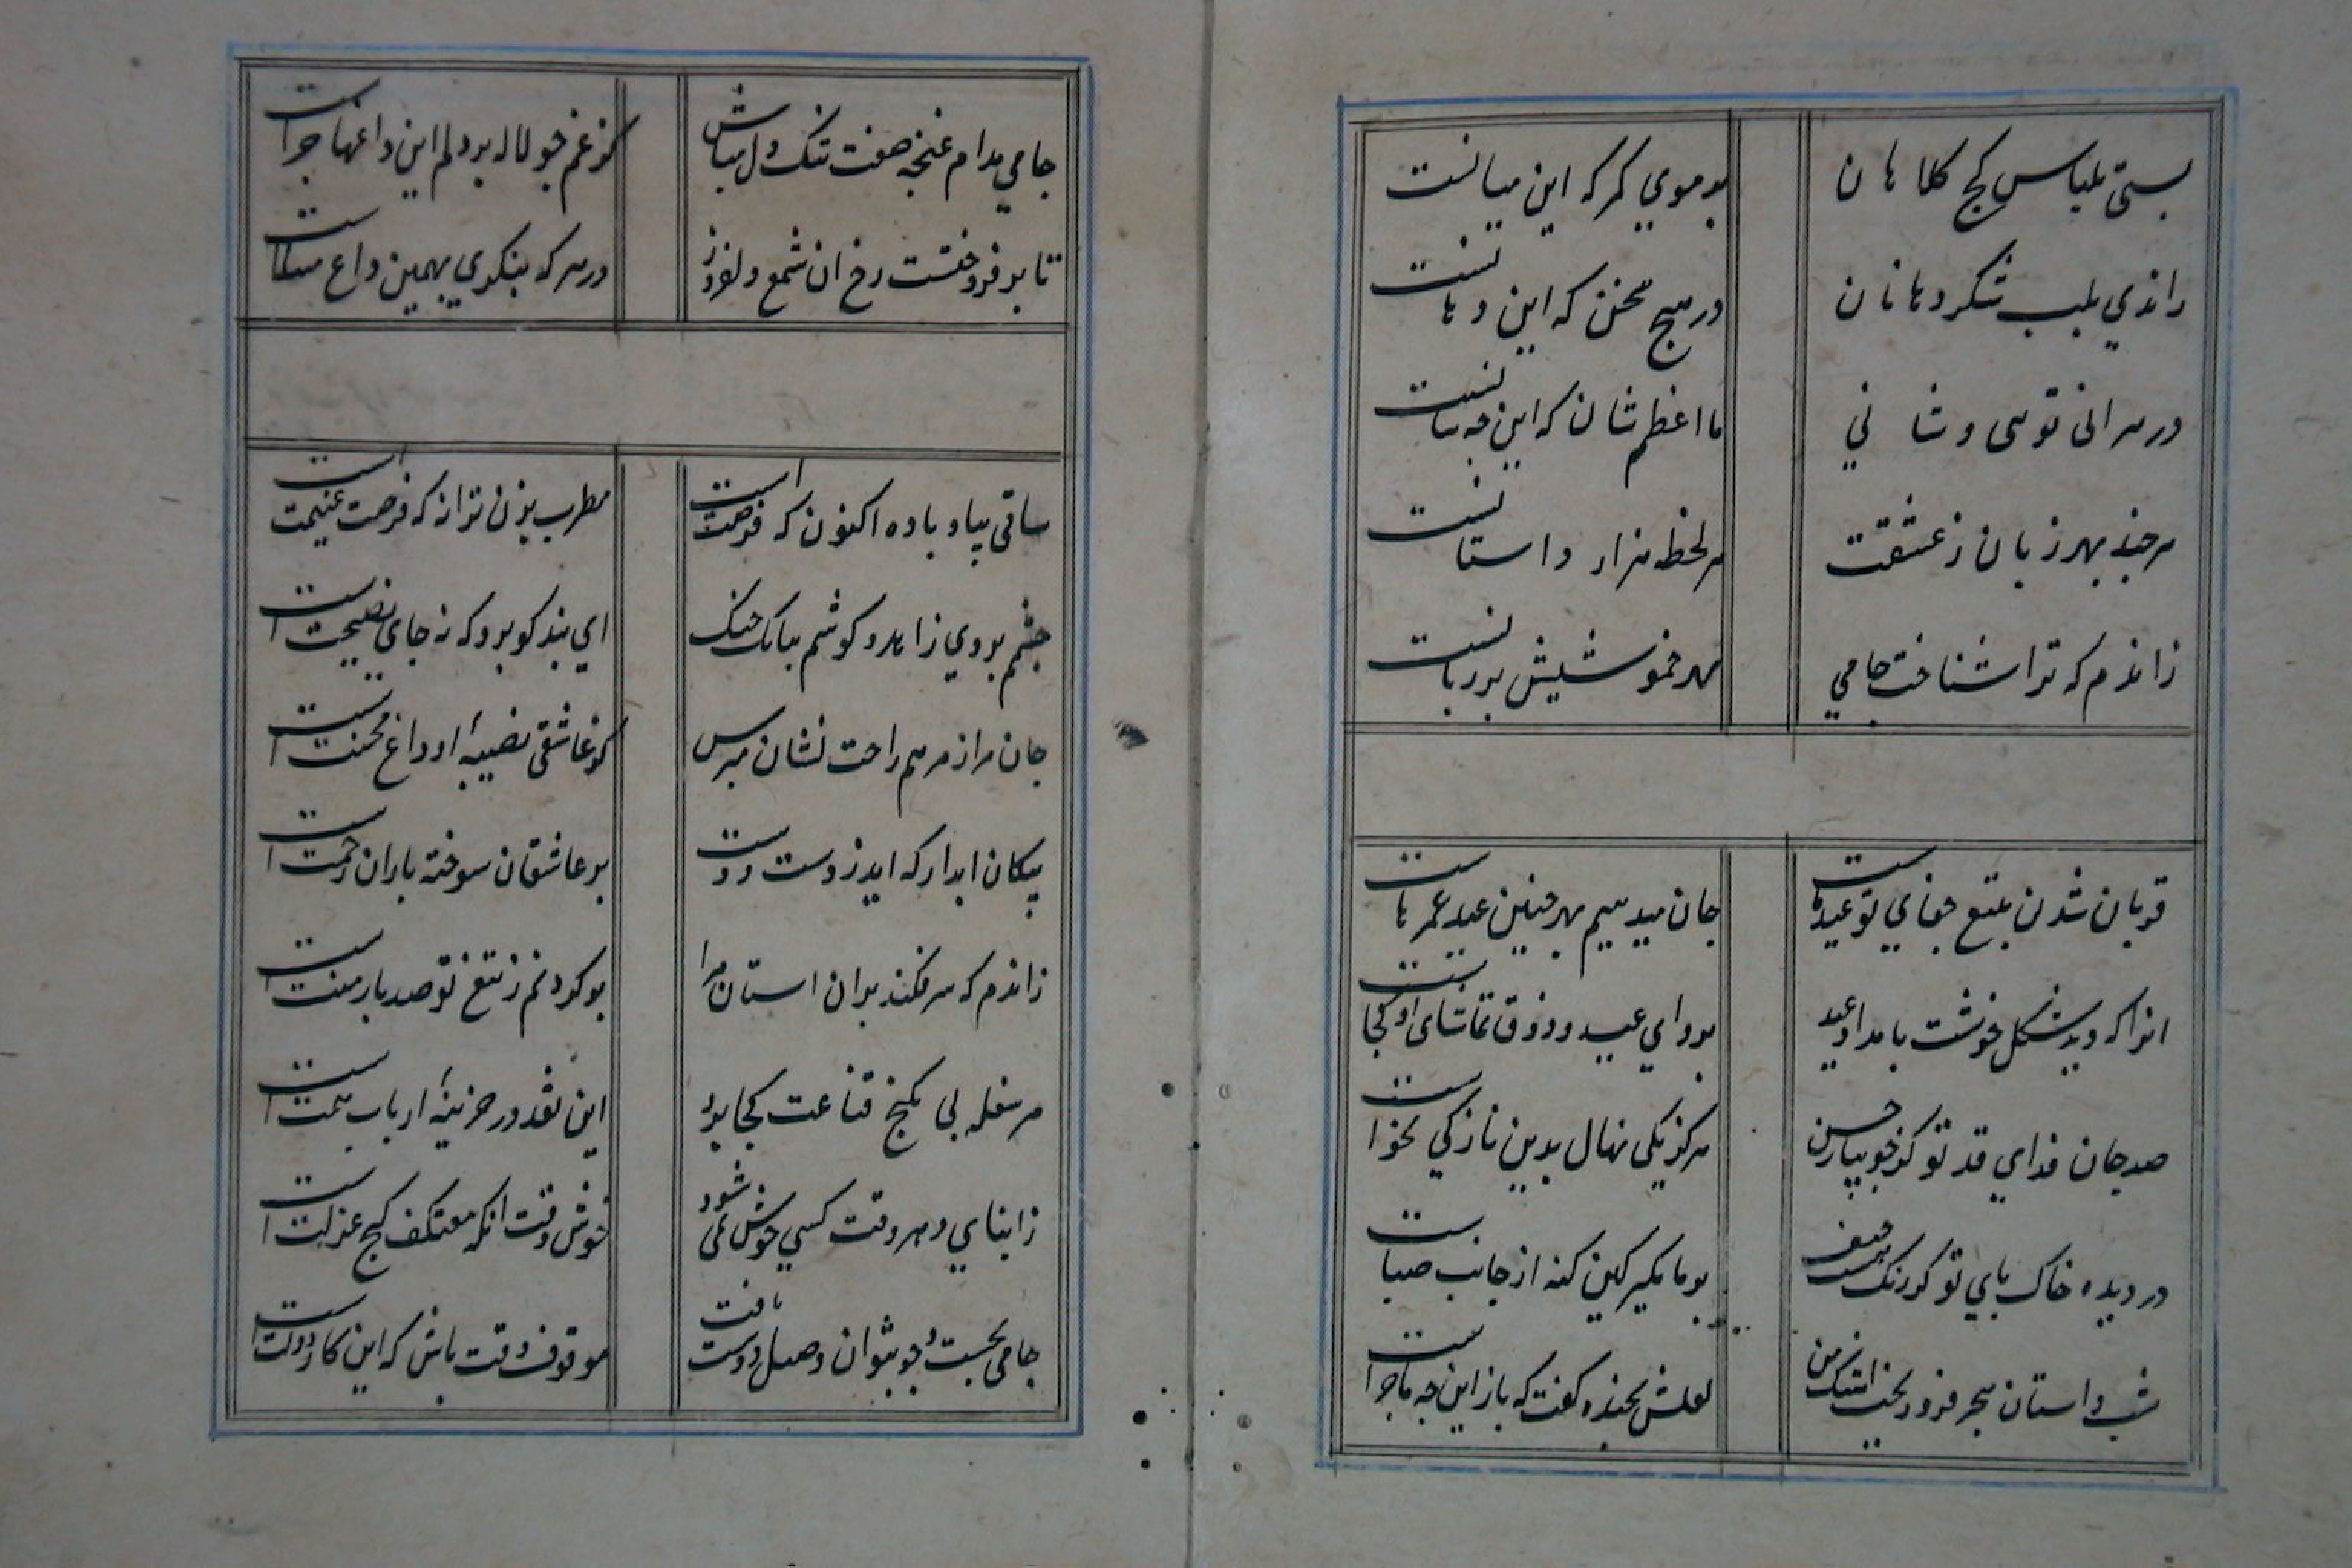 بستی بلباس کج کلاهان
بر موی کمر که این میانست
راندی بلب شکر دهانان
در هیچ سخن که این دهانست
در هر انی تویی و شانی
ما اعظم شان که این چه شانست
هر چند بهر زبان ز عشقت
هر لحظه هزار داستانست
زاندم که ترا شناخت جامی
مهر خموشیش بر زبانست
قربان شدن بتیغ جفای تو عید ماست
جان میدهیم بهر چنین عید عمرهاست
انرا که دید شکل خوشت بامداد عید
پروای عید و ذوق تماشای او کجاست
صد جان فدای قد تو کز جویبار حسن
هرگز یکی نهال بدین نازکی نخواست
در دیده خاک پای تو گر رنگ
بر ما مگیر کین گنه از جانب صباست
شب داستان هجر فرو ریخت اشک من
لعلش بخنده گفت که باز این چه ماجراست
جامی مدام غنچه صفت تنک دل مباش
کز غم چو لاله بر دلم این داغها چراست
تا بر فروختست رخ ان شمع دلفروز
در هر که بنگری بهمین داغ مبتلاست
ساقی بیار باده اکنون که فرصت است
مطرب بزن ترانه که فرصت غنیمت است
چشم بروی زاهد و گوشم ببانگ چنگ
ای پند گو برو که نه جای نصیحت است
جان مرا ز مرهم راحت نشان مپرس
کز عاشقی نصیبه او داغ محنت است
پیکان ابدار که اید ز دست دوست
بر عاشقان سوخته باران رحمت است
زاندم که سر فکند بران استان مرا
بر گردنم ز تیغ تو صد بار منت است
هر سفله پی بگنج قناعت کجا برد
این نقد در خزینه ارباب همت است
ز ابنای دهر وقت کسی خوش نمی شود
خوش وقت انکه معتکف کنج عزلت است
جامی بجست و جو نتوان وصل دوست یافت
موقوف وقت باش که این کار دولت است